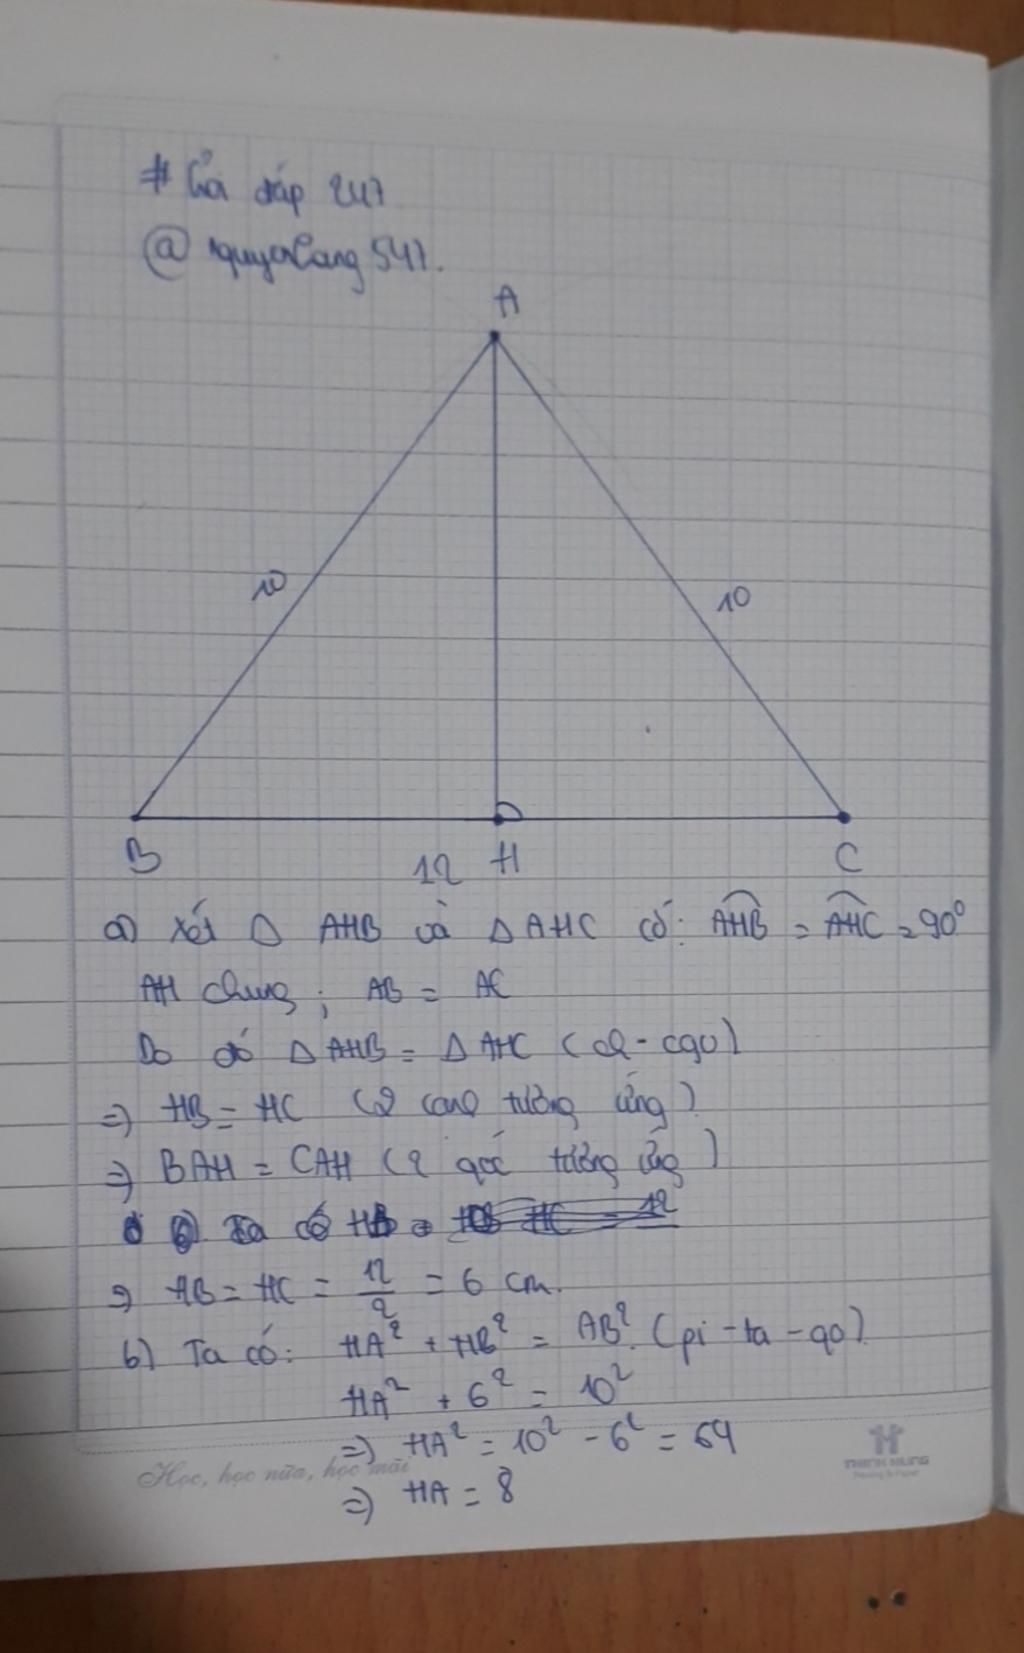 # Hỏi đáp 247
@ nguyengang 541.
A
10
10
B
12 H
C
a) Xét Δ AHB và Δ AHC có: AHB = AHC = 90°
AH chung; AB = AC
Do đó Δ AHB = Δ AHC (ch - cgv)
=> HB = HC (2 cạnh tương ứng)
=> BAH = CAH (2 góc tương ứng)
Ta có HB + HC = 12
=> HB = HC = 12/2 = 6 cm.
b) Ta có: HA² + HB² = AB² (pi-ta-go).
HA² + 6² = 10²
=> HA² = 10² - 6² = 64
Học, học nữa, học mãi
THINH HUNG
=> HA = 8